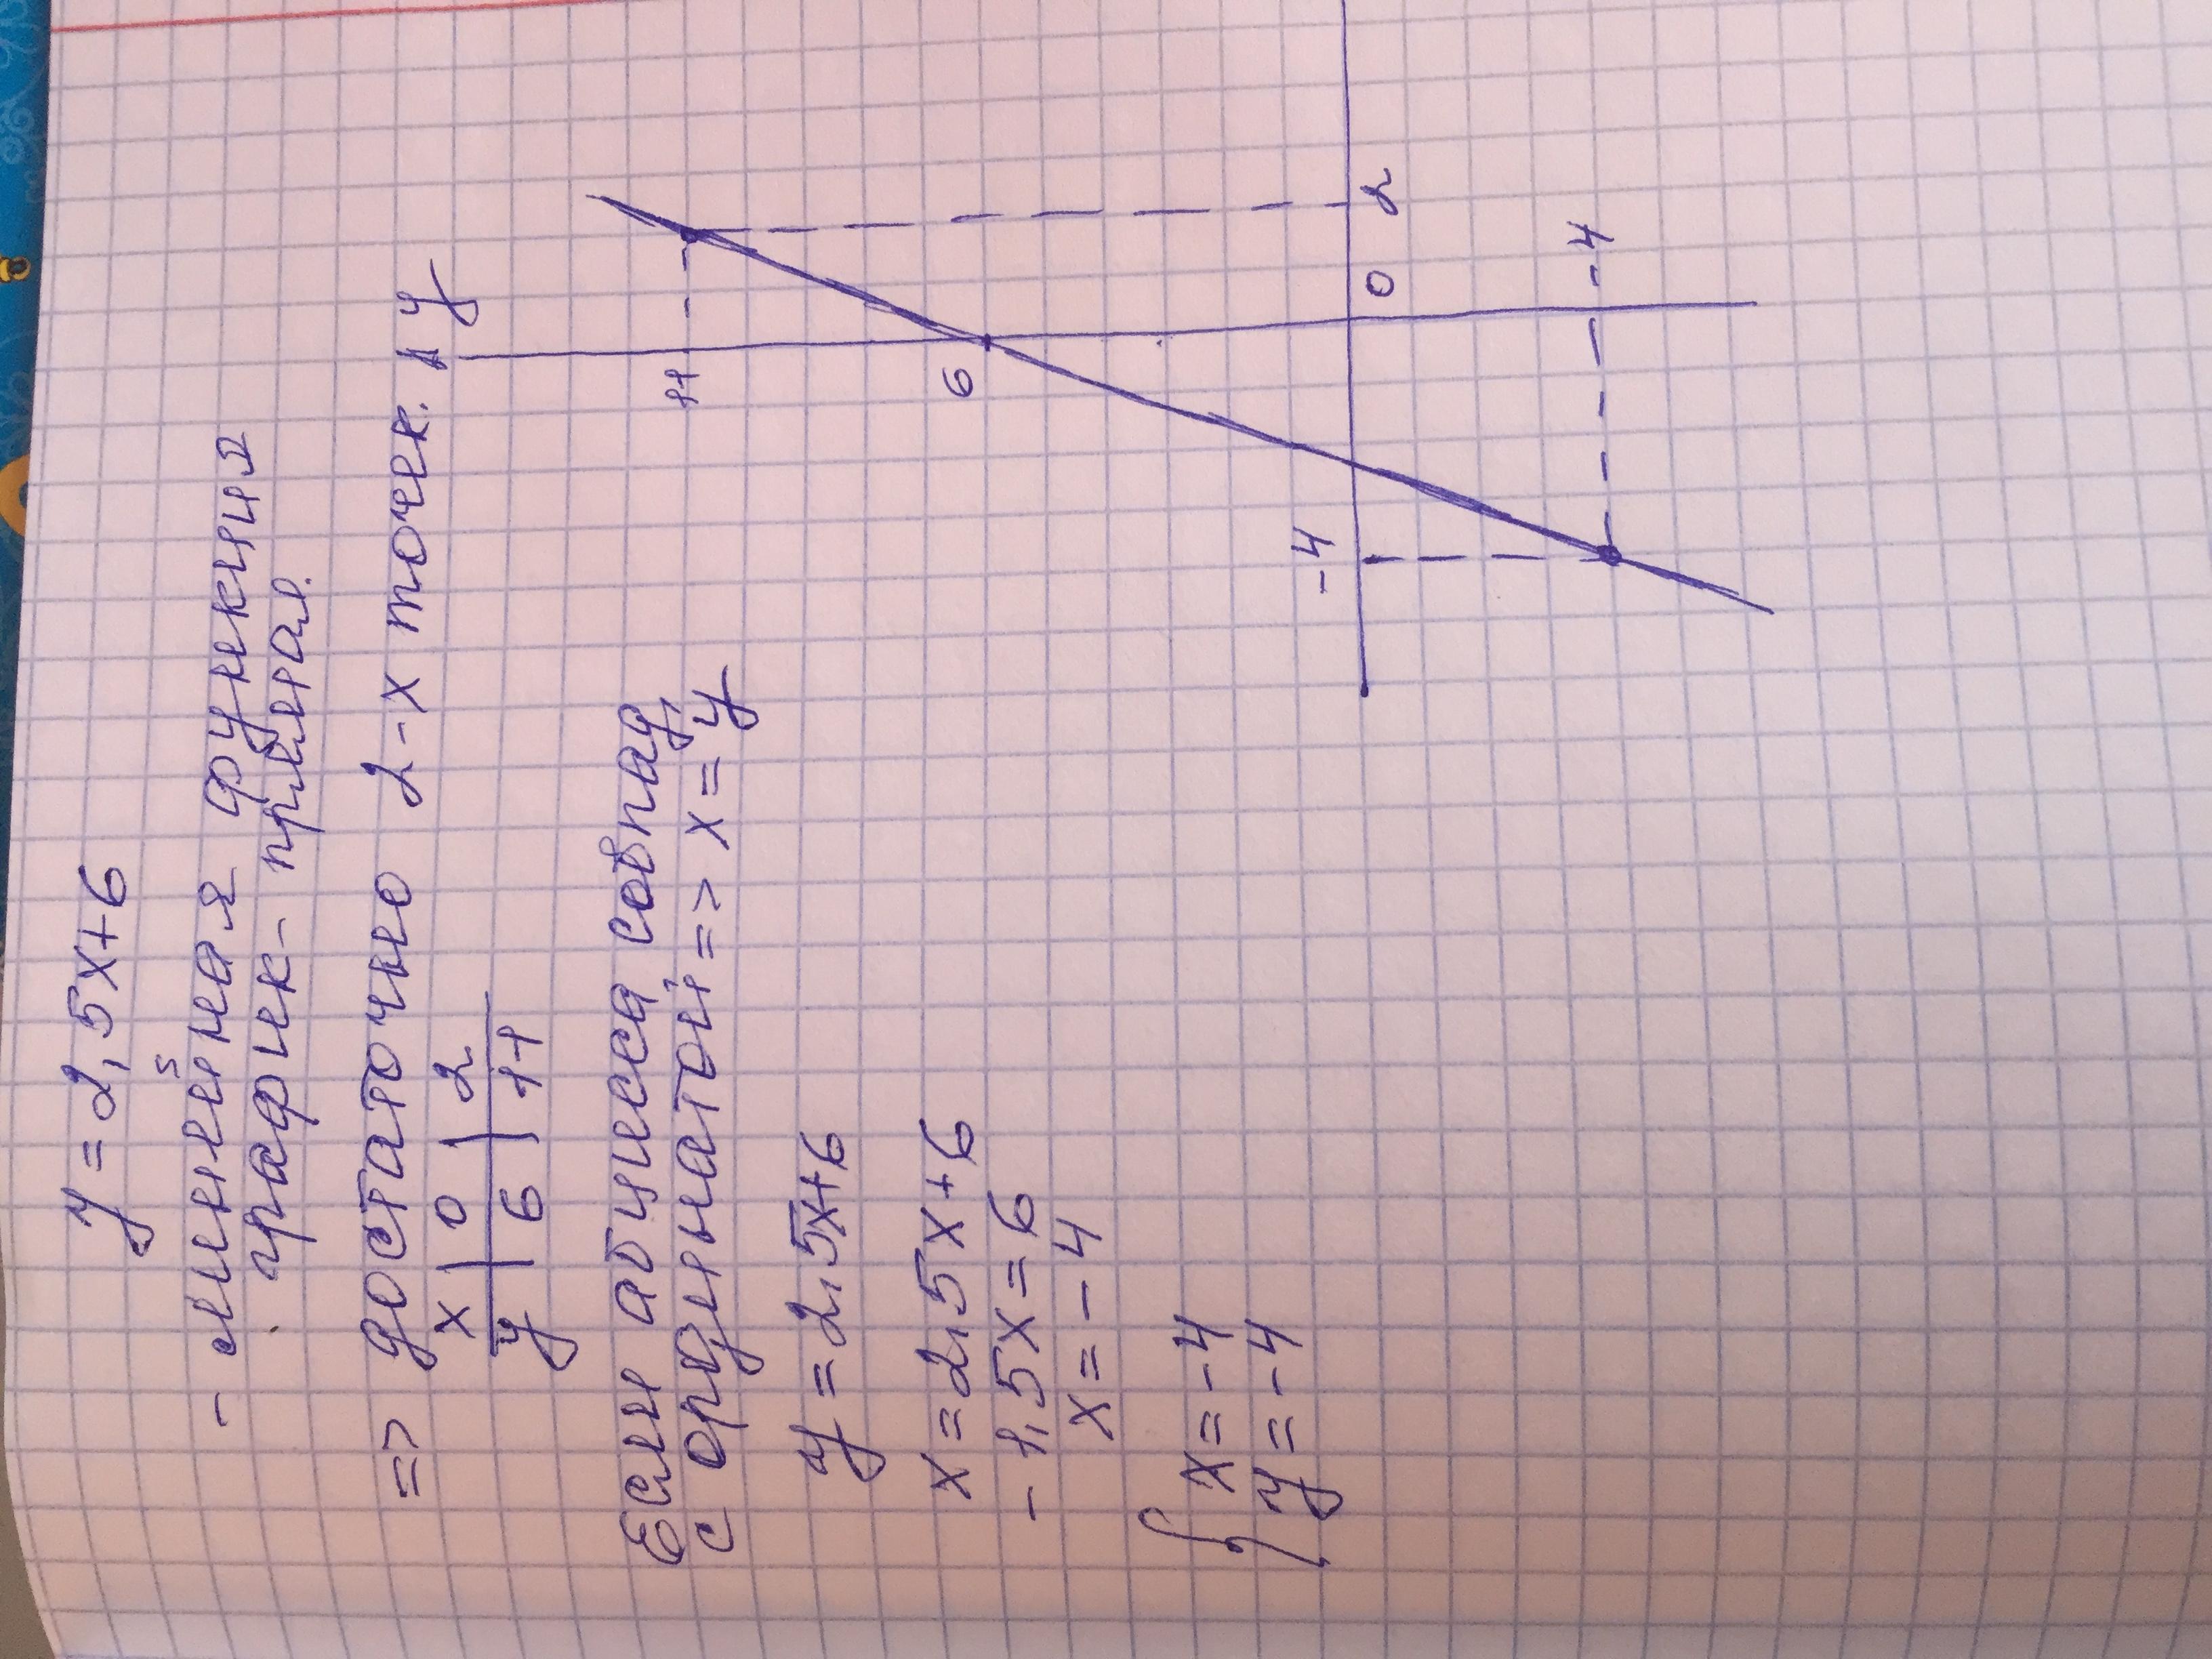 y = 2,5x+6
- линейная функция
график - прямая.
=> достаточно 2-х точек.
x | 0 | 2
y | 6 | 11
Если абцисса совпад,
с ординатой, => x = y
y = 2,5x+6
x = 2,5x+6
- 1,5x = 6
x = - 4
{ x = - 4
y = - 4
y
11
6
-4
0
2
-4